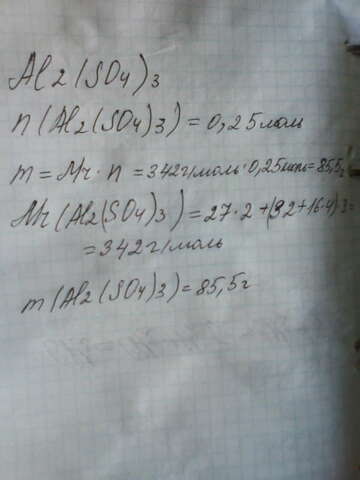 Al2(SO4)3
n(Al2(SO4)3) = 0,25моль
m = Mr · n = 342г/моль·0,25моль=85,5г
Mr(Al2(SO4)3) = 27·2+(32+16·4)·3=
=342г/моль
m(Al2(SO4)3)=85,5г